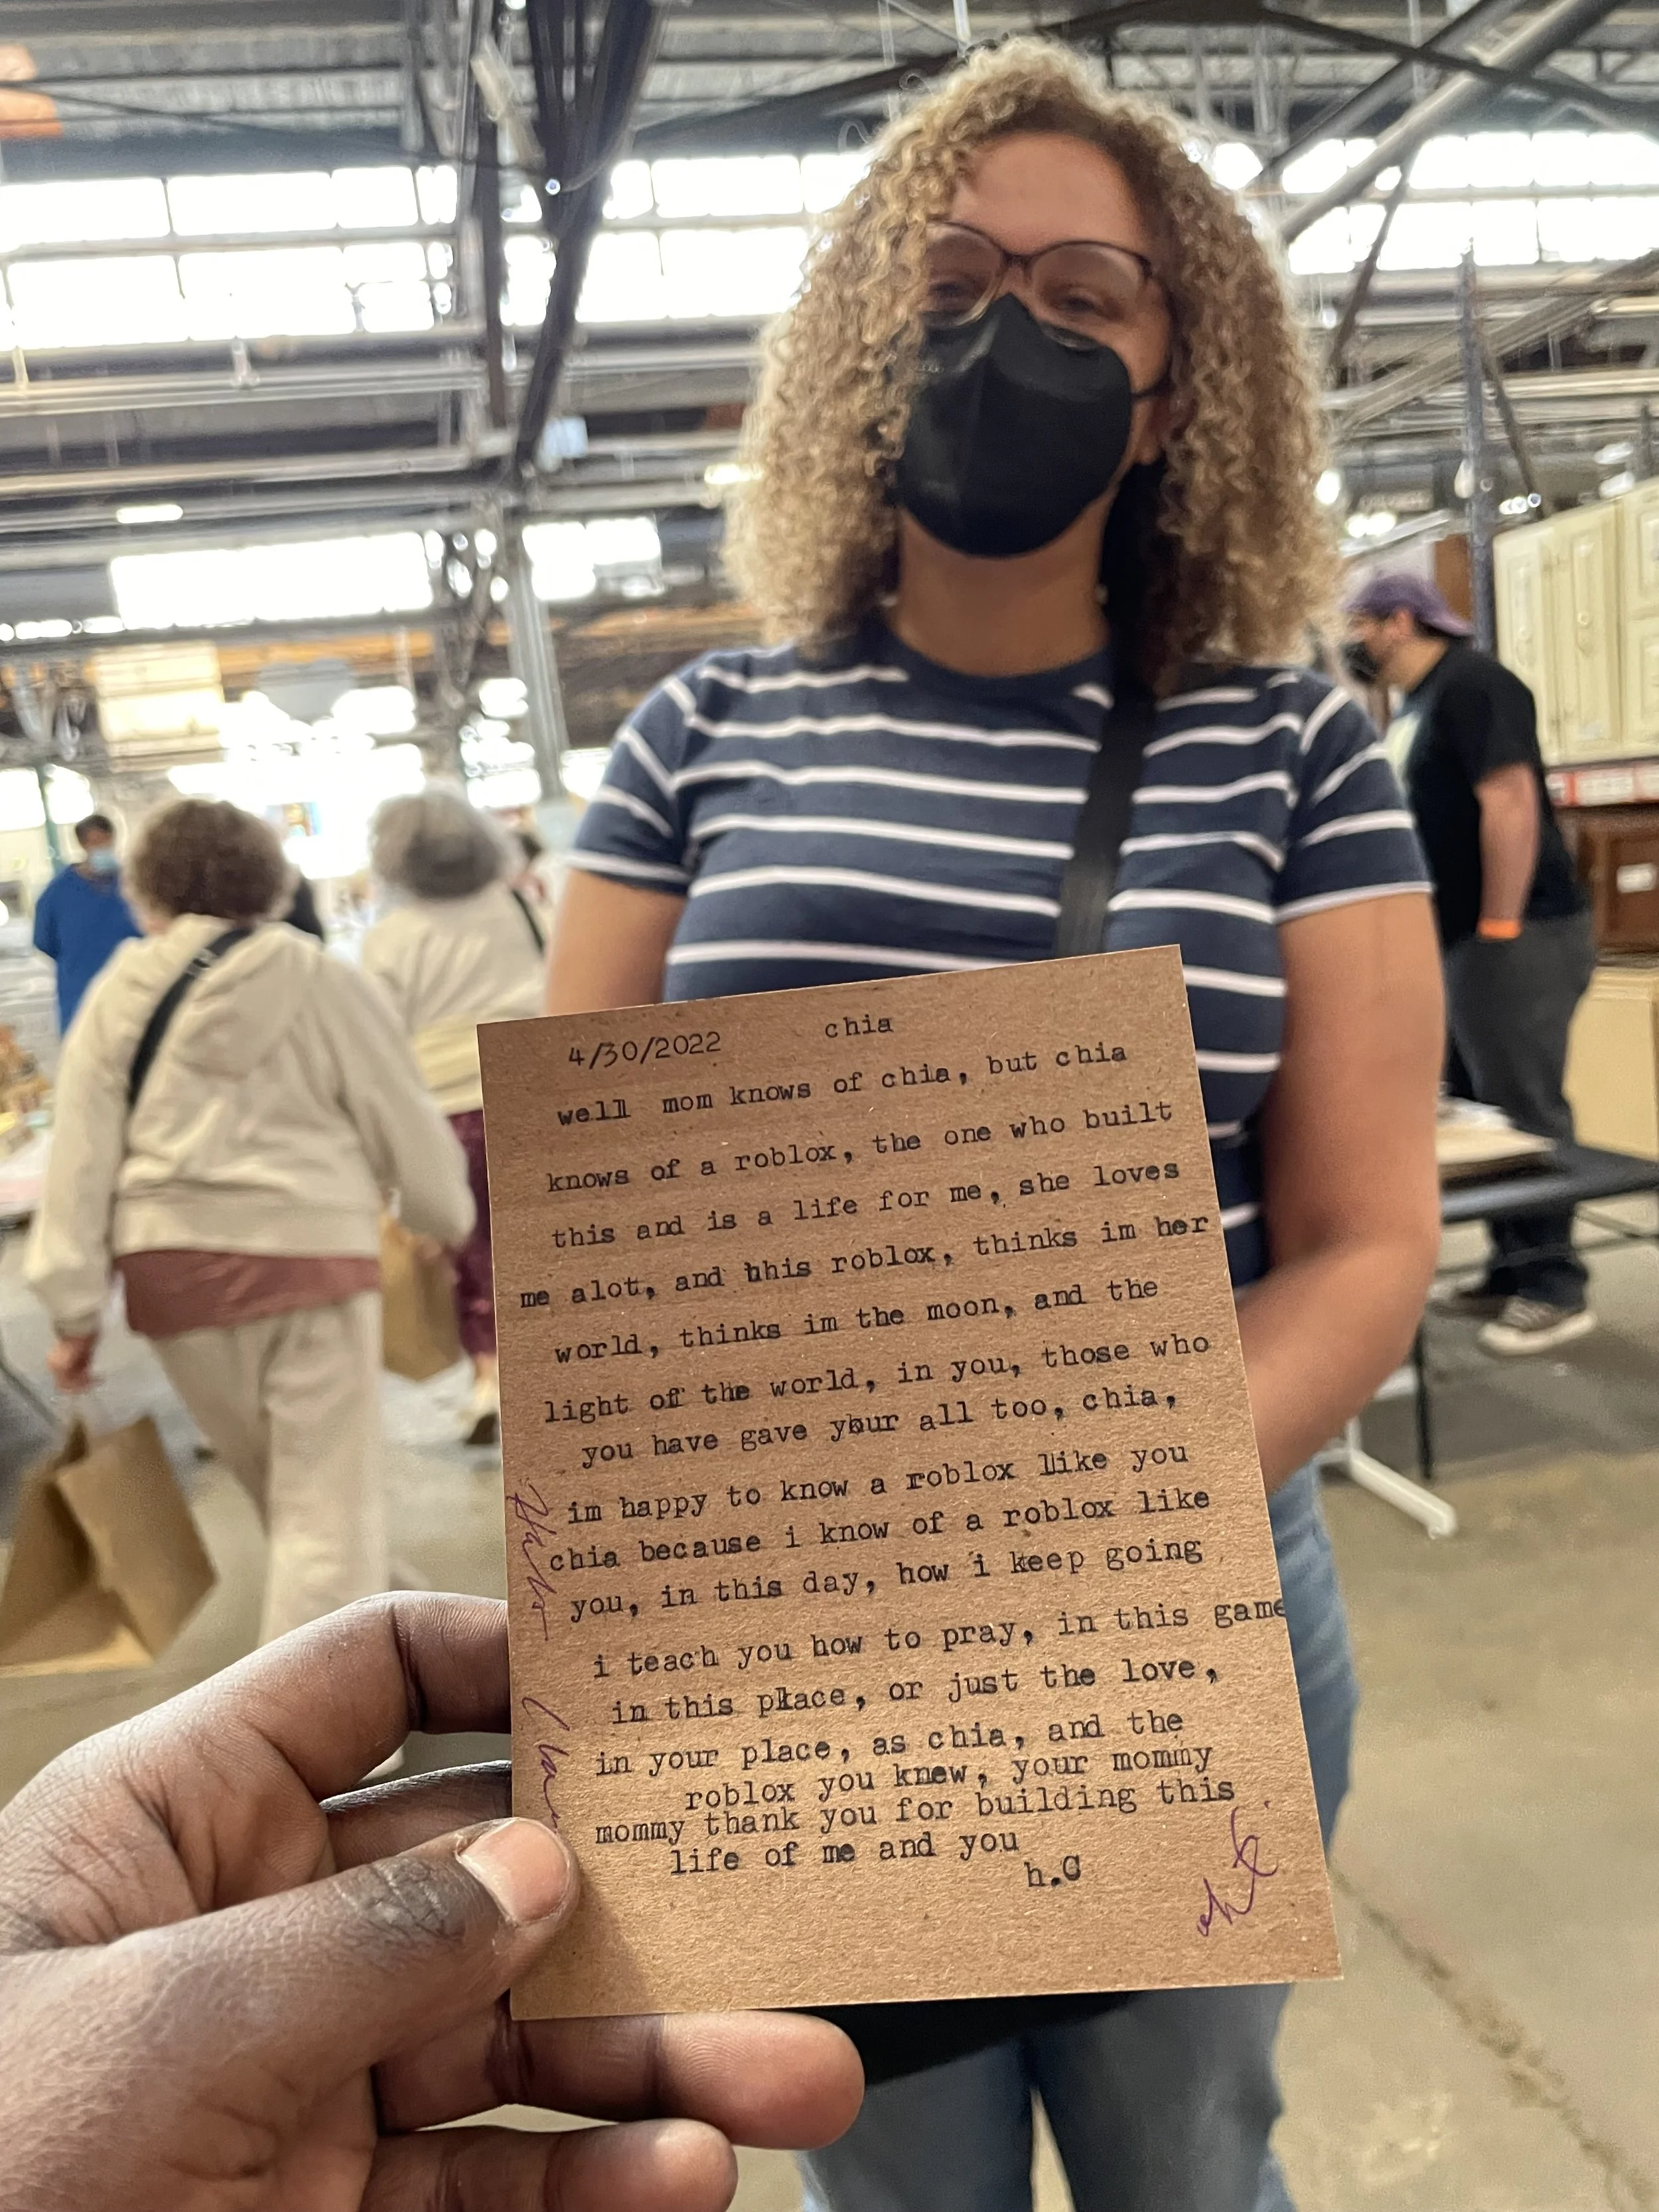 4/30/2022 chia
well mom knows of chia, but chia
knows of a roblox, the one who built
this and is a life for me, she loves
me alot, and this roblox, thinks im her
world, thinks im the moon, and the
light of the world, in you, those who
you have gave your all too, chia,
im happy to know a roblox like you
chia because i know of a roblox like
you, in this day, how i keep going
i teach you how to pray, in this game
in this place, or just the love,
in your place, as chia, and the
roblox you knew, your mommy
mommy thank you for building this
life of me and you
h.C